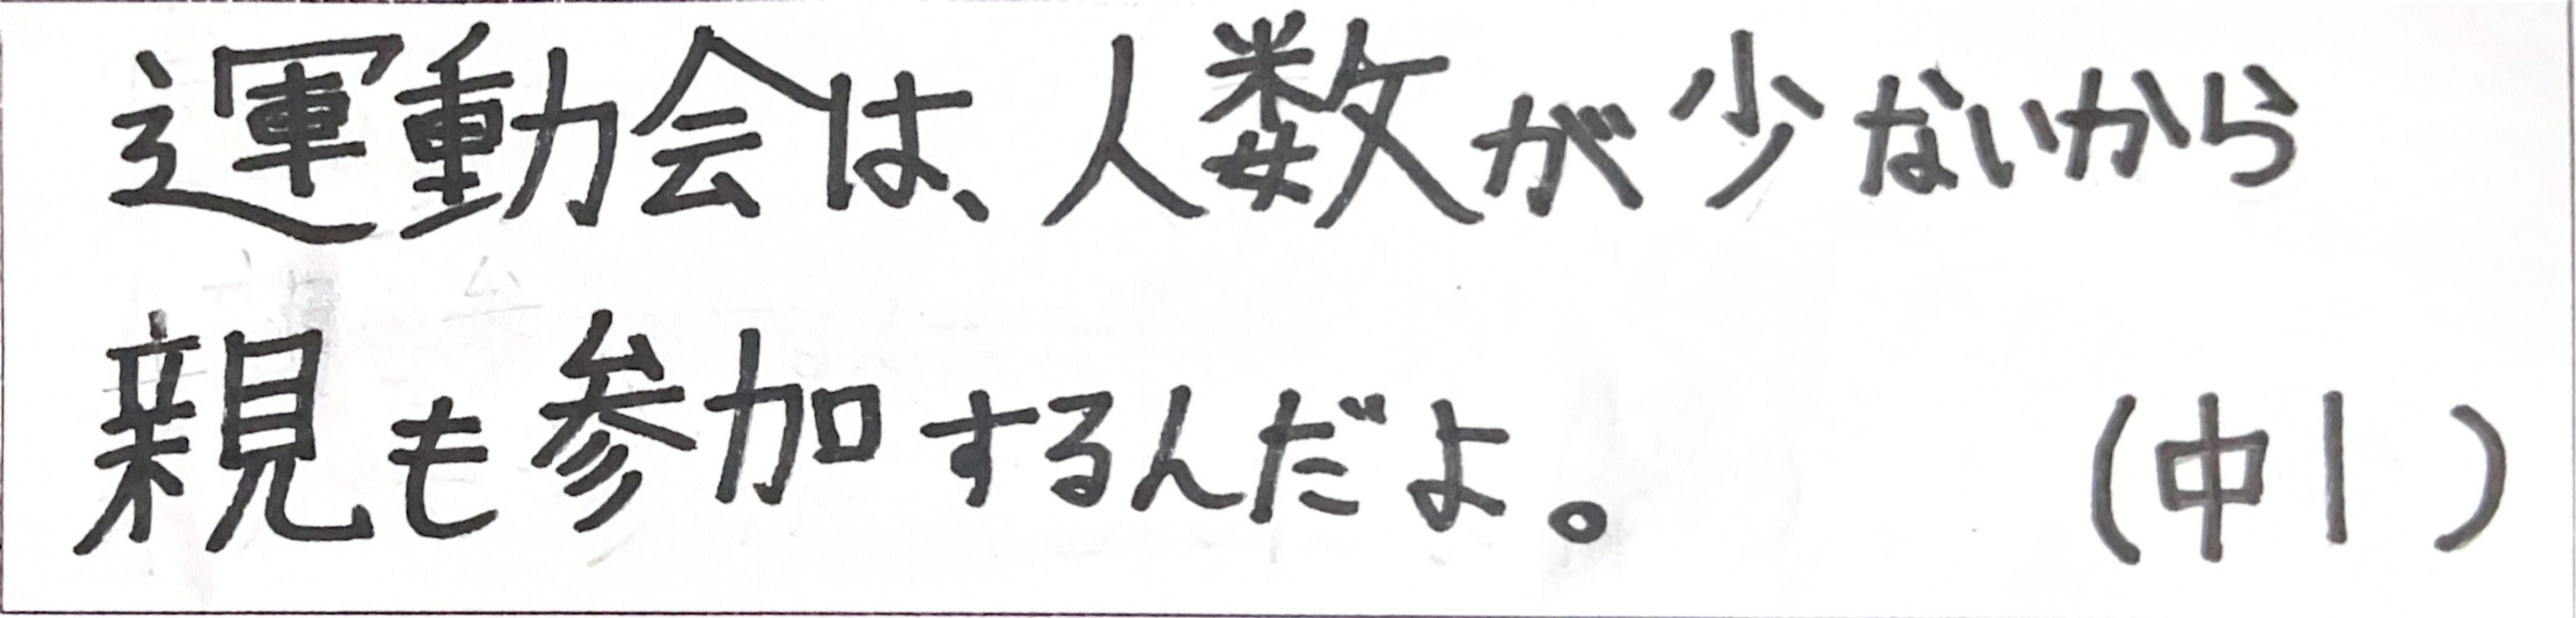 運動会は、人数が少ないから
親も参加するんだよ。 (中1)